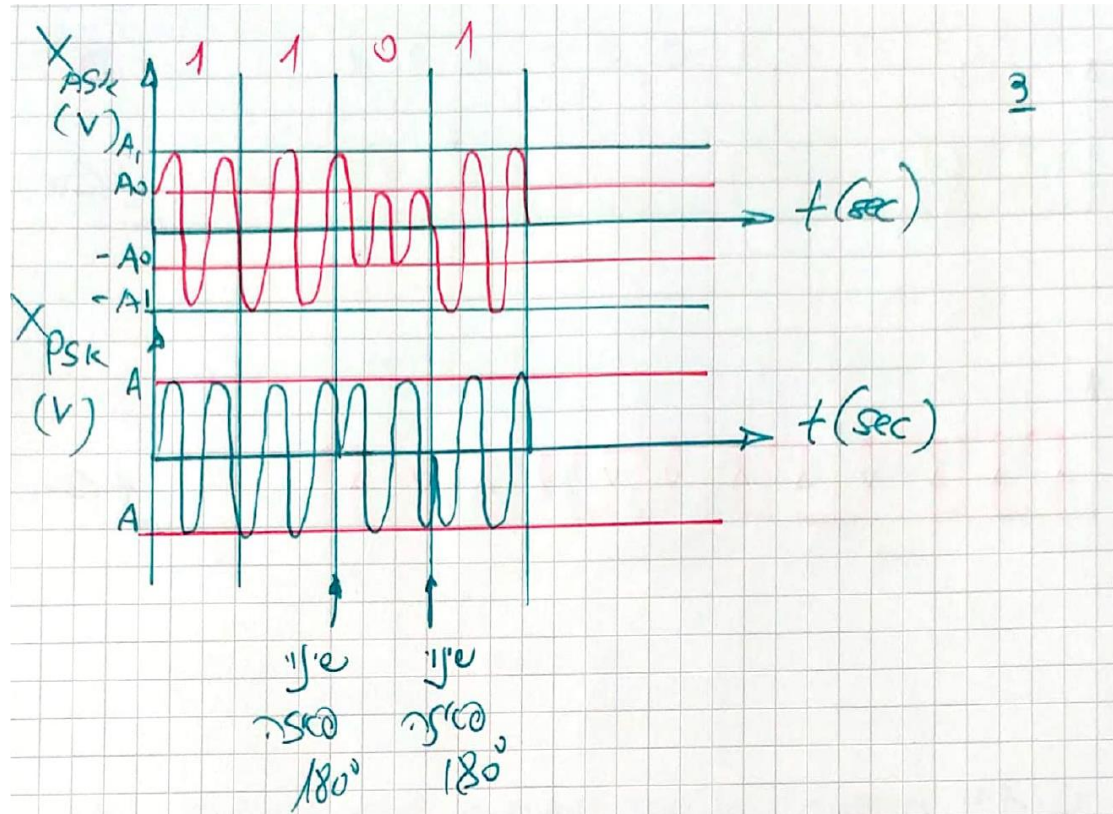 1 1 0 1
X ASK
(V)
3
A1
A0
t (sec)
-A0
-A1
X PSK
(V)
A
t (sec)
A
שינוי
פאזה
180°
שינוי
פאזה
180°